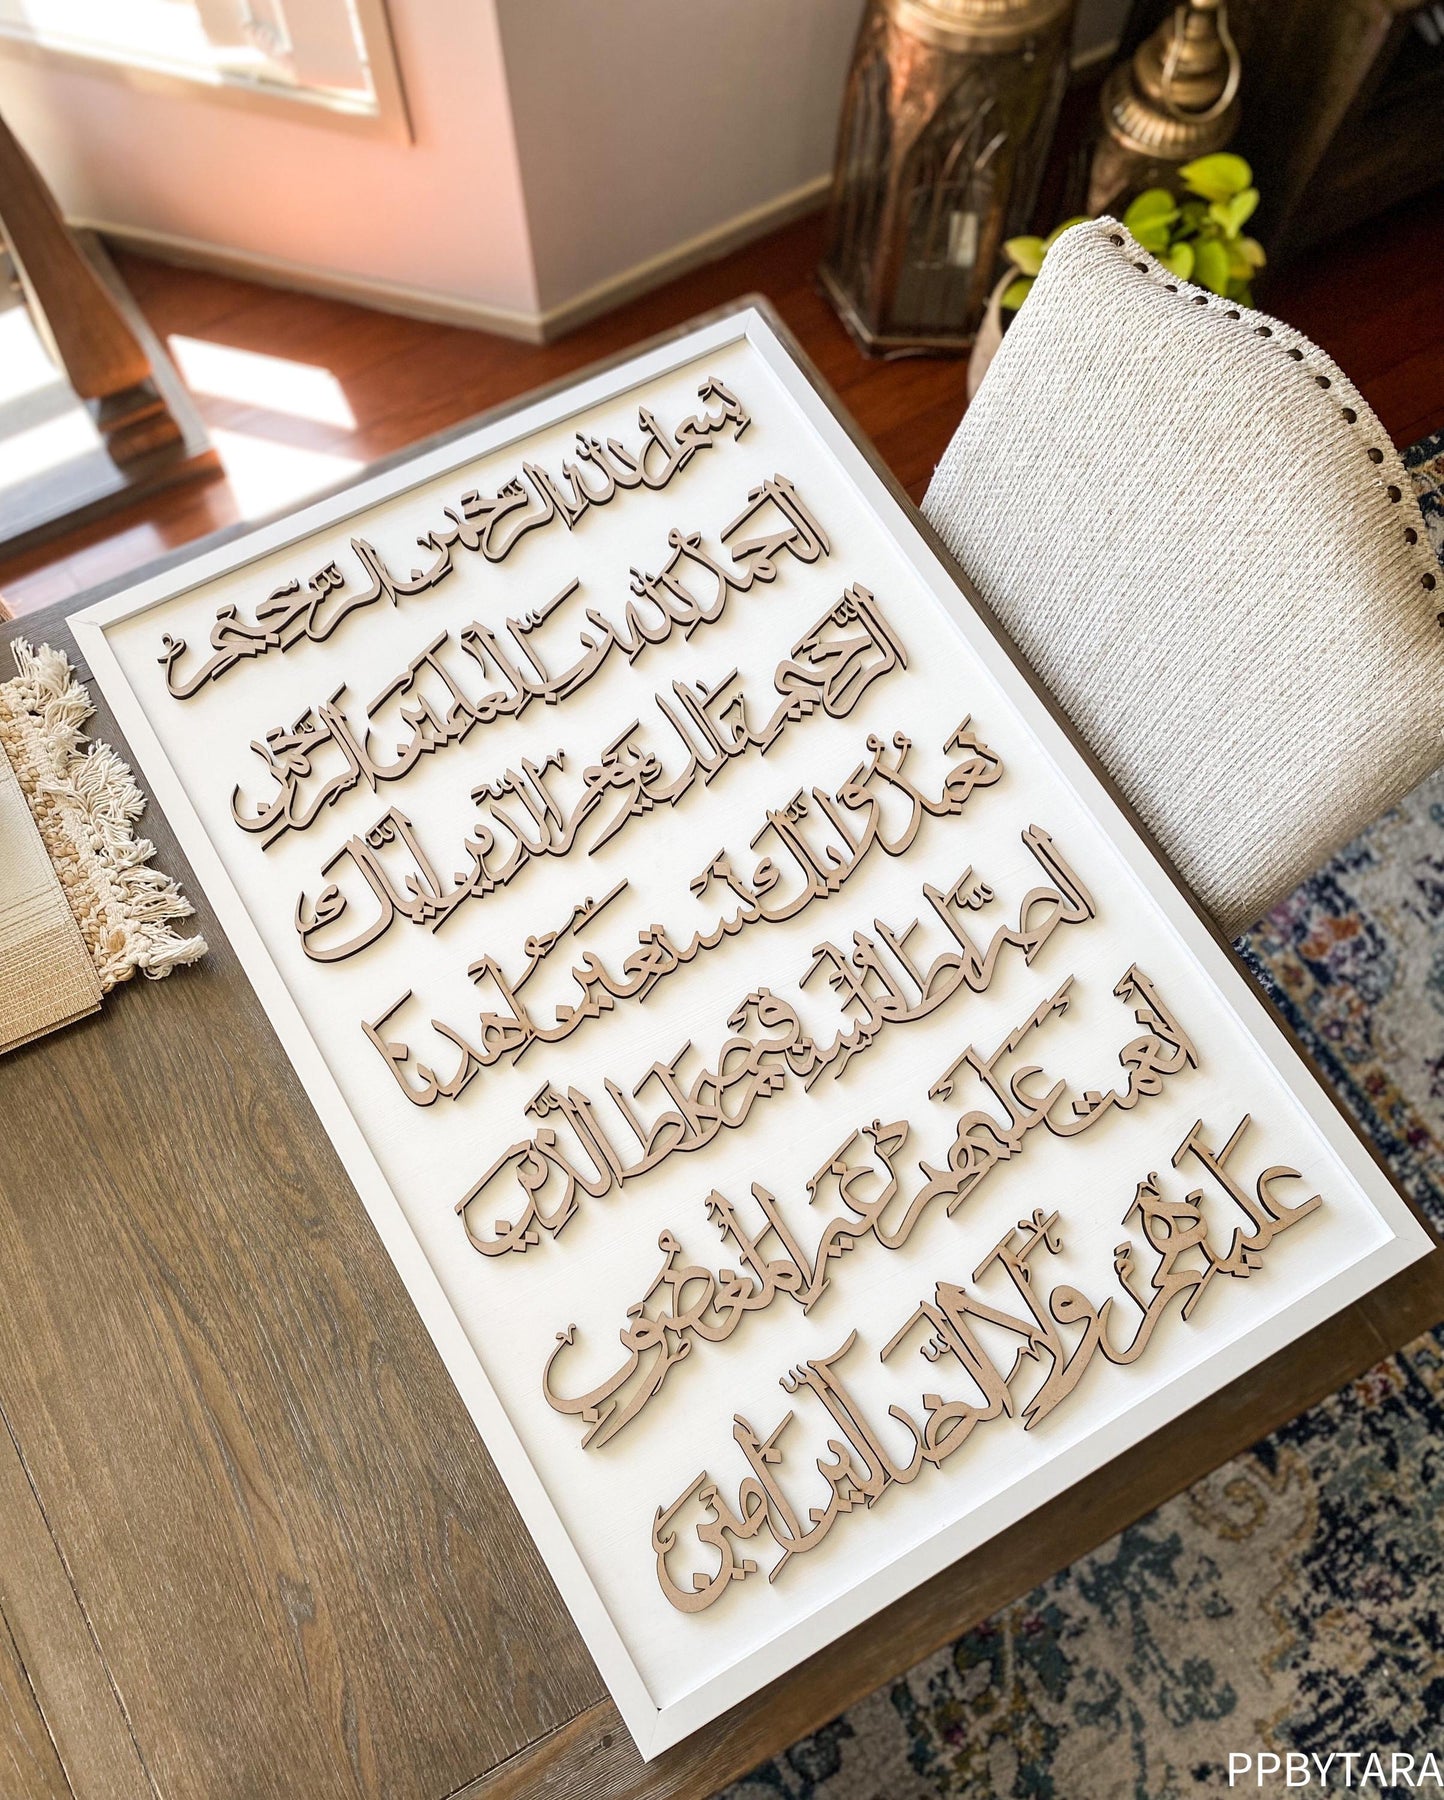 بِسْمِ اللهِ الرَّحْمنِ الرَّحِيْمِ
اَلْحَمْدُ لِلهِ رَبِّ الْعلَمِيْنَ الرَّحْمنِ
الرَّحِيْمِ مَالِكِ يَوْمِ الدِّيْنِ اِيَّاكَ
نَعْبُدُ وَاِيَّاكَ نَسْتَعِيْنَ اِهْدِنَا
الصِّرَاطَ الْمُسْتَقِيْمَ صِرَاطَ الَّذِيْنَ
أَنْعَمْتَ عَلَيْهِمْ غَيْرِ الْمَغْضُوْبِ
عَلَيْهِمْ وَلَا الضَّآلِّيْنَ اٰمِيْنَ
PPBYTARA